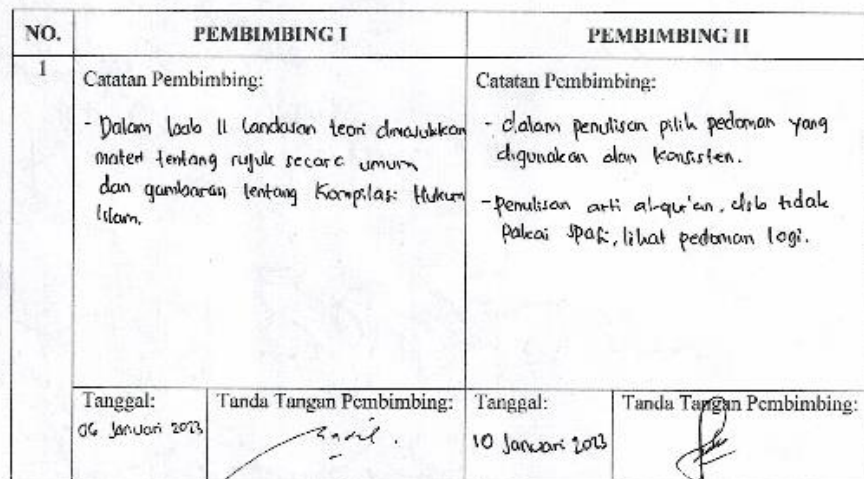 NO.
PEMBIMBING I
PEMBIMBING II
1
Catatan Pembimbing:
- Dalam bab II Landasan teori dimasukkan
materi tentang rujuk secara umum
dan gambaran tentang Kompilasi Hukum
Islam.
Catatan Pembimbing:
- dalam penulisan pilih pedoman yang
digunakan dan konsisten.
- penulisan arti al-qur'an, dsb tidak
pakai spasi, lihat pedoman lagi.
Tanggal:
06 Januari 2023
Tanda Tangan Pembimbing:
Tanggal:
10 Januari 2023
Tanda Tangan Pembimbing: